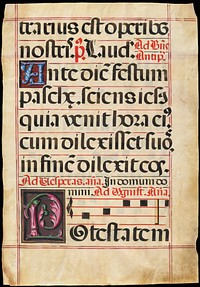 trarius est operibus
nostris. p. Laud. Ad Bñe
Antip.
Ante diē festum
paschæ, sciens iesꝰ
quia venit hora eiꝰ
cum dilexisset suos,
in finē dilexit eos.
Ad Vesperas. aña. In domum do
mini. Ad Magnif. Aña.
Potestatem